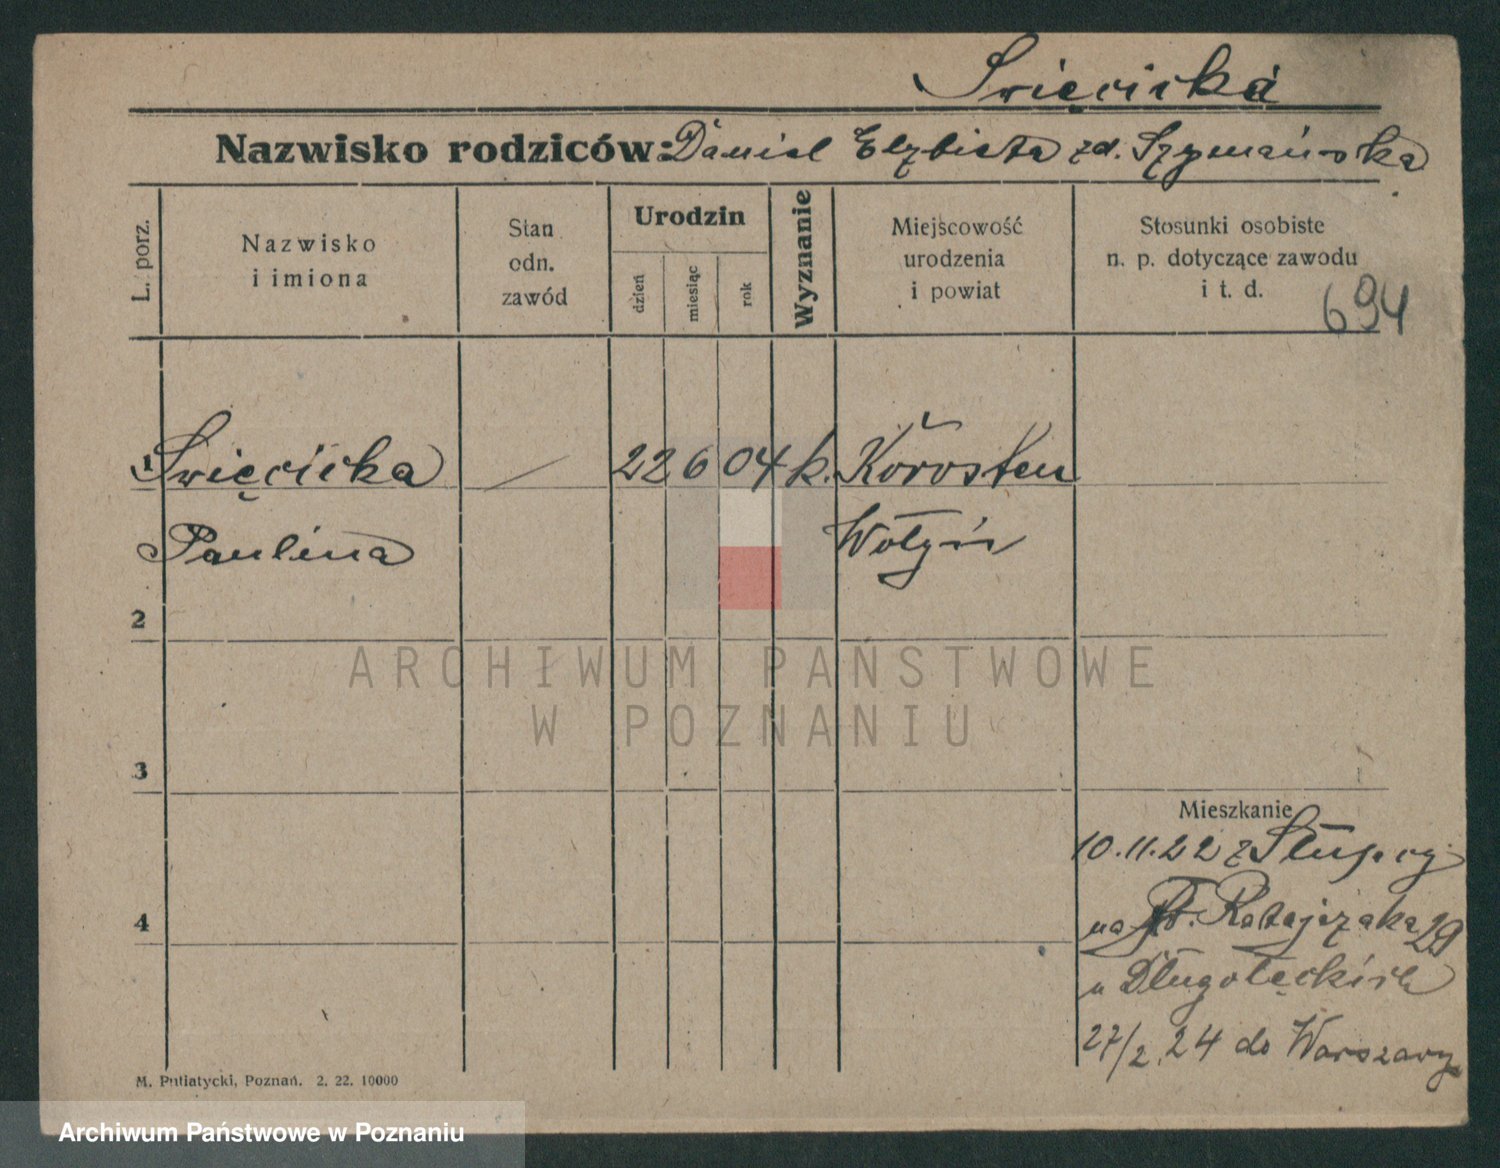 Święcicka
Nazwisko rodziców: Daniel Elżbieta zd. Szymańska
L. porz.
Nazwisko
i imiona
Stan
odn.
zawód
Urodzin
dzień
miesiąc
rok
Wyznanie
Miejscowość
urodzenia
i powiat
Stosunki osobiste
n. p. dotyczące zawodu
i t. d.
694
1 Święcicka 22 6 04 k. Korosten
Paulina Wołyń
2
ARCHIWUM PAŃSTWOWE
W POZNANIU
3
Mieszkanie
10.11.22 z Słupcy
4
na Ratajczaka 29
u Długołęckich
27/2.24 do Warszawy
M. Putiatycki, Poznań. 2. 22. 10000
Archiwum Państwowe w Poznaniu